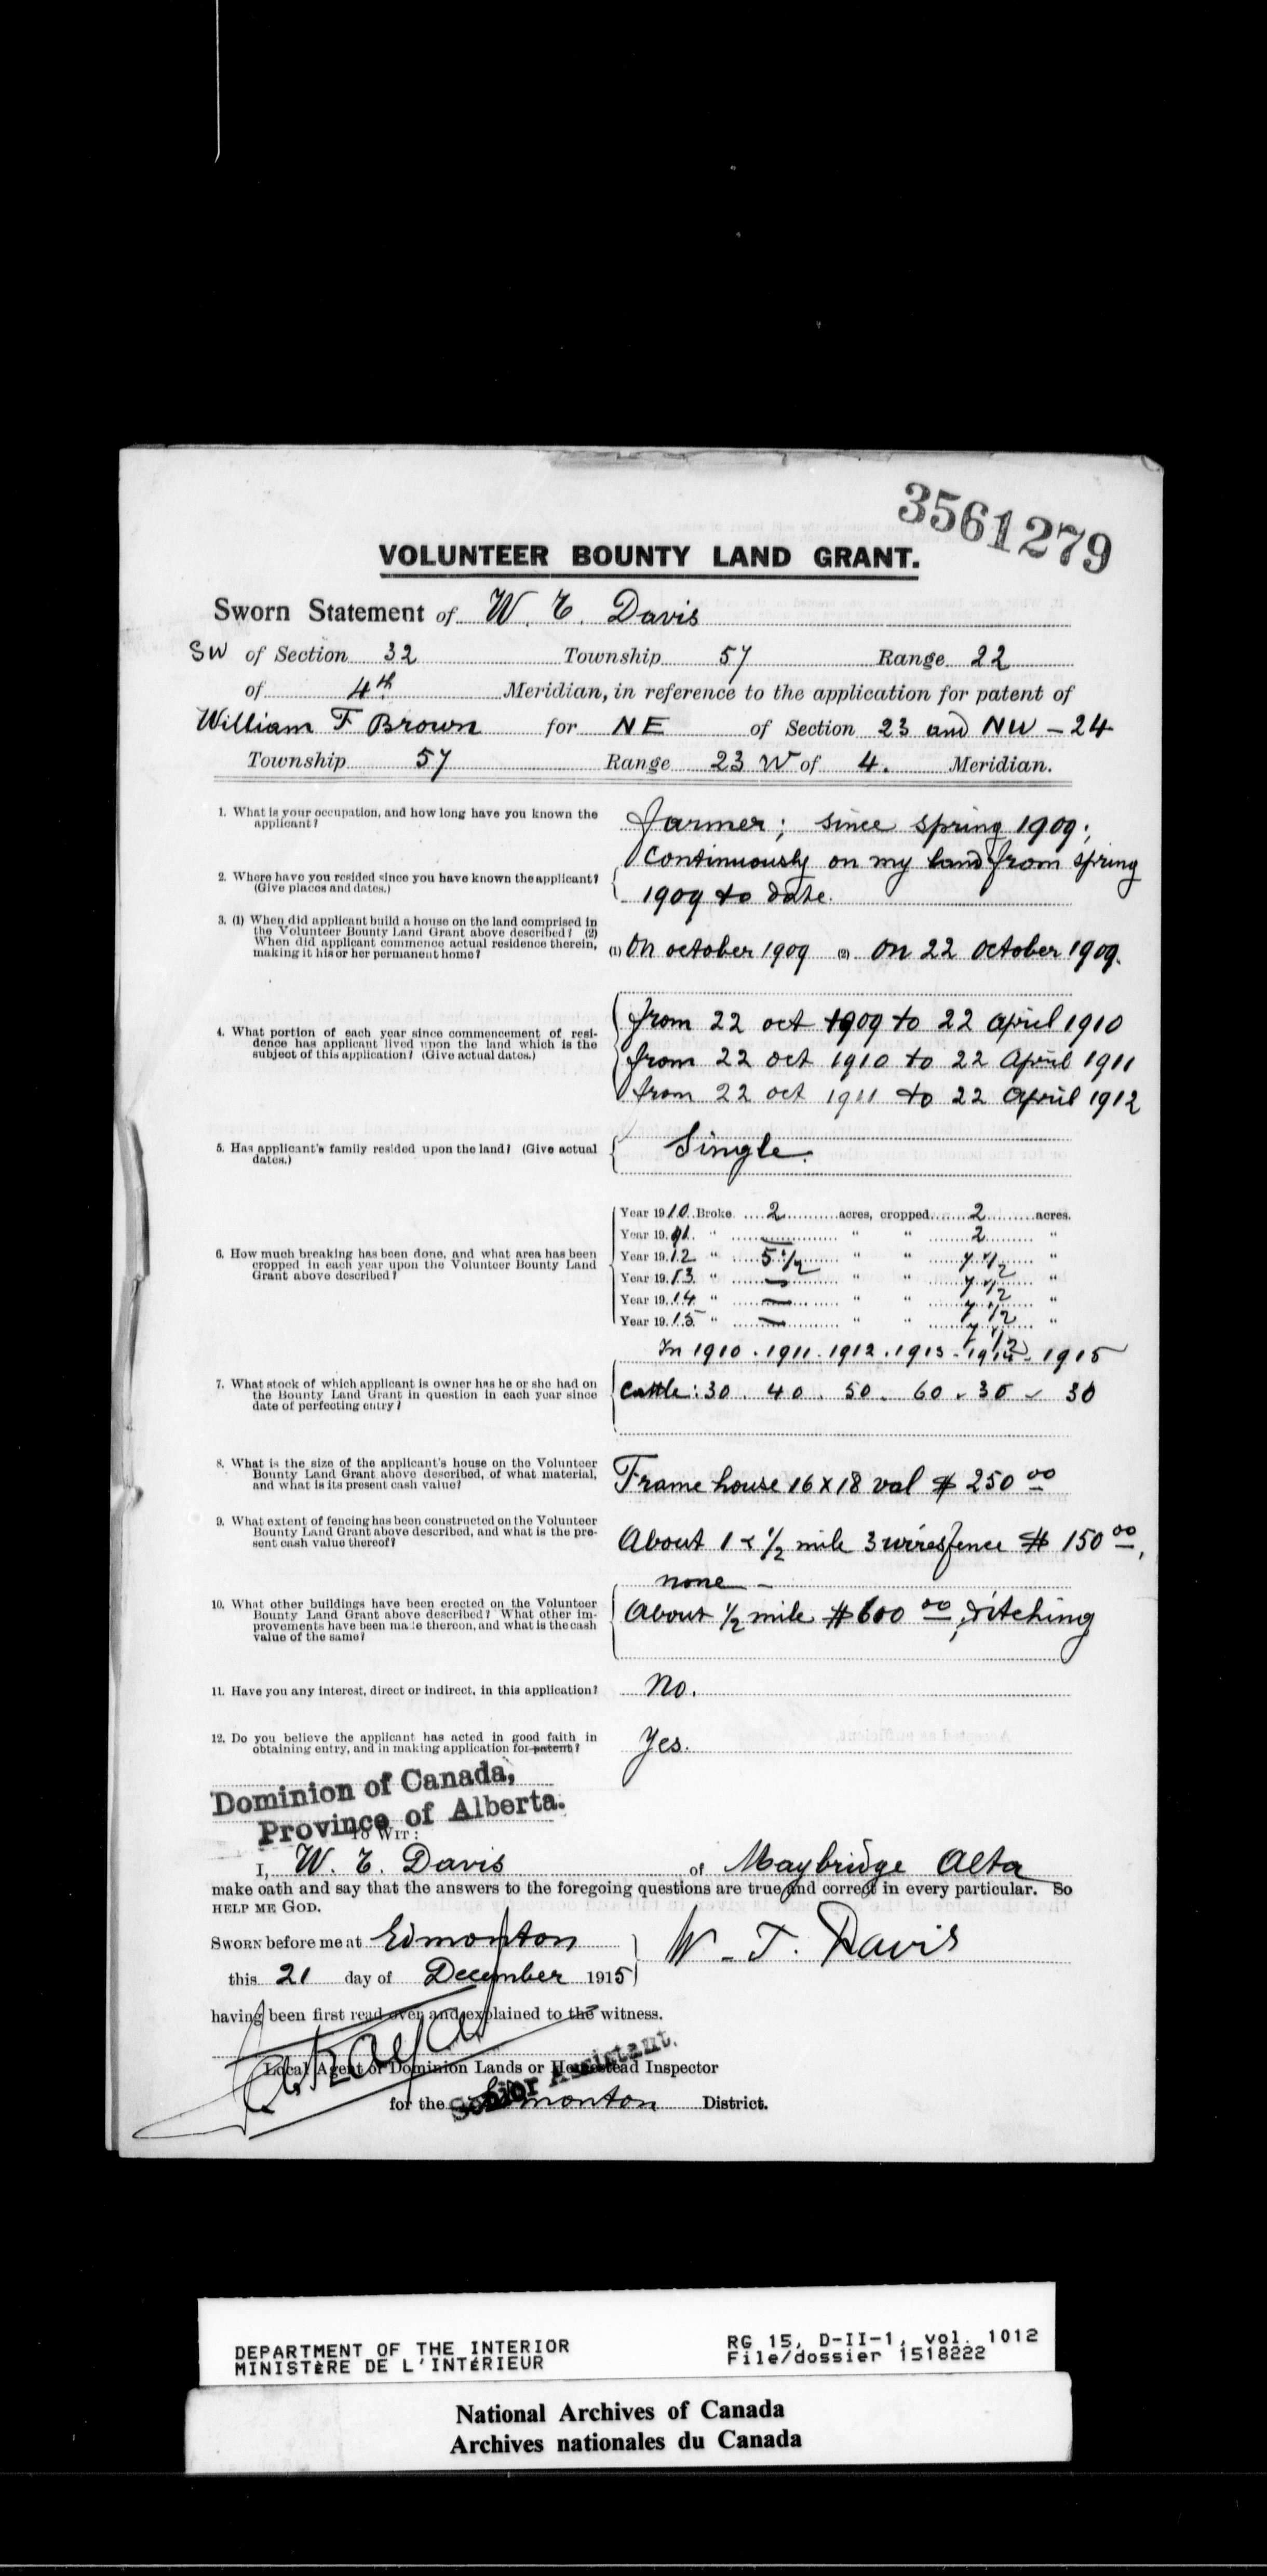 3561279
VOLUNTEER BOUNTY LAND GRANT.
Sworn Statement of W. E. Davis
SW of Section 32 Township 57 Range 22
of 4th Meridian, in reference to the application for patent of
William F Brown for NE of Section 23 and NW - 24
Township 57 Range 23 W of 4. Meridian.
1. What is your occupation, and how long have you known the
applicant?
farmer; since spring 1909;
2. Where have you resided since you have known the applicant?
(Give places and dates.)
Continuously on my land from spring
1909 to date.
3. (1) When did applicant build a house on the land comprised in
the Volunteer Bounty Land Grant above described? (2)
When did applicant commence actual residence therein,
making it his or her permanent home?
(1) On october 1909 (2) On 22 October 1909.
4. What portion of each year since commencement of resi-
dence has applicant lived upon the land which is the
subject of this application? (Give actual dates.)
from 22 oct 1909 to 22 april 1910
from 22 oct 1910 to 22 April 1911
from 22 oct 1911 to 22 April 1912
5. Has applicant's family resided upon the land? (Give actual
dates.)
Single.
6. How much breaking has been done, and what area has been
cropped in each year upon the Volunteer Bounty Land
Grant above described?
Year 1910 Broke 2 acres, cropped 2 acres.
Year 1911 " — " " 2 "
Year 1912 " 5 1/2 " " 7 1/2 "
Year 1913 " — " " 7 1/2 "
Year 1914 " — " " 7 1/2 "
Year 1915 " — " " 7 1/2 "
7. What stock of which applicant is owner has he or she had on
the Bounty Land Grant in question in each year since
date of perfecting entry?
In 1910 . 1911 . 1912 . 1913 - 1914 - 1915
Cattle: 30 . 40 . 50 . 60 . 30 - 30
8. What is the size of the applicant's house on the Volunteer
Bounty Land Grant above described, of what material,
and what is its present cash value?
Frame house 16 x 18 val $ 250 00
9. What extent of fencing has been constructed on the Volunteer
Bounty Land Grant above described, and what is the pre-
sent cash value thereof?
About 1 & 1/2 mile 3 wires fence $ 150 00,
10. What other buildings have been erected on the Volunteer
Bounty Land Grant above described? What other im-
provements have been made thereon, and what is the cash
value of the same?
none -
About 1/2 mile $ 600 00, ditching
11. Have you any interest, direct or indirect, in this application?
No.
12. Do you believe the applicant has acted in good faith in
obtaining entry, and in making application for patent?
Yes.
Dominion of Canada,
Province of Alberta.
TO WIT:
I, W. E. Davis of Maybridge Alta
make oath and say that the answers to the foregoing questions are true and correct in every particular. So
HELP ME GOD.
SWORN before me at Edmonton
W. T. Davis
this 21 day of December 1915
having been first read over and explained to the witness.
Local Agent of Dominion Lands or Homestead Inspector
Senior Assistant.
for the Edmonton District.
DEPARTMENT OF THE INTERIOR
MINISTÈRE DE L'INTÉRIEUR
RG 15, D-II-1, vol. 1012
File/dossier 1518222
National Archives of Canada
Archives nationales du Canada